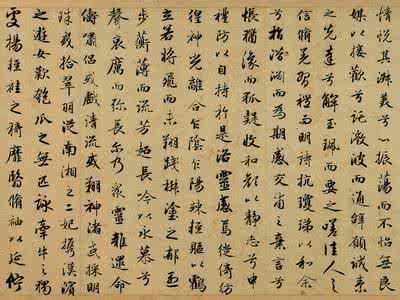 情悦其淑美兮心振蕩而不怡無良
媒以接歡兮託微波而通辭願誠素
之先達兮解玉珮而要之嗟佳人之
信脩羌習禮而明詩抗瓊珶以和余
兮指潛淵而為期感交甫之棄言兮
悵猶豫而狐疑收和顏以靜志兮申
禮防以自持於是洛靈感焉徙倚彷
徨神光離合乍陰乍陽竦輕軀以鶴
立若將飛而未翔踐椒塗之郁烈
步蘅薄而流芳超長吟以永慕兮
聲哀厲而彌長爾乃衆靈雜遝命
儔嘯侶或戲清流或翔神渚或採明
珠或拾翠羽從南湘之二妃攜漢濱
之遊女歎匏瓜之無匹詠牽牛之獨
處揚輕袿之猗靡翳脩袖以延佇